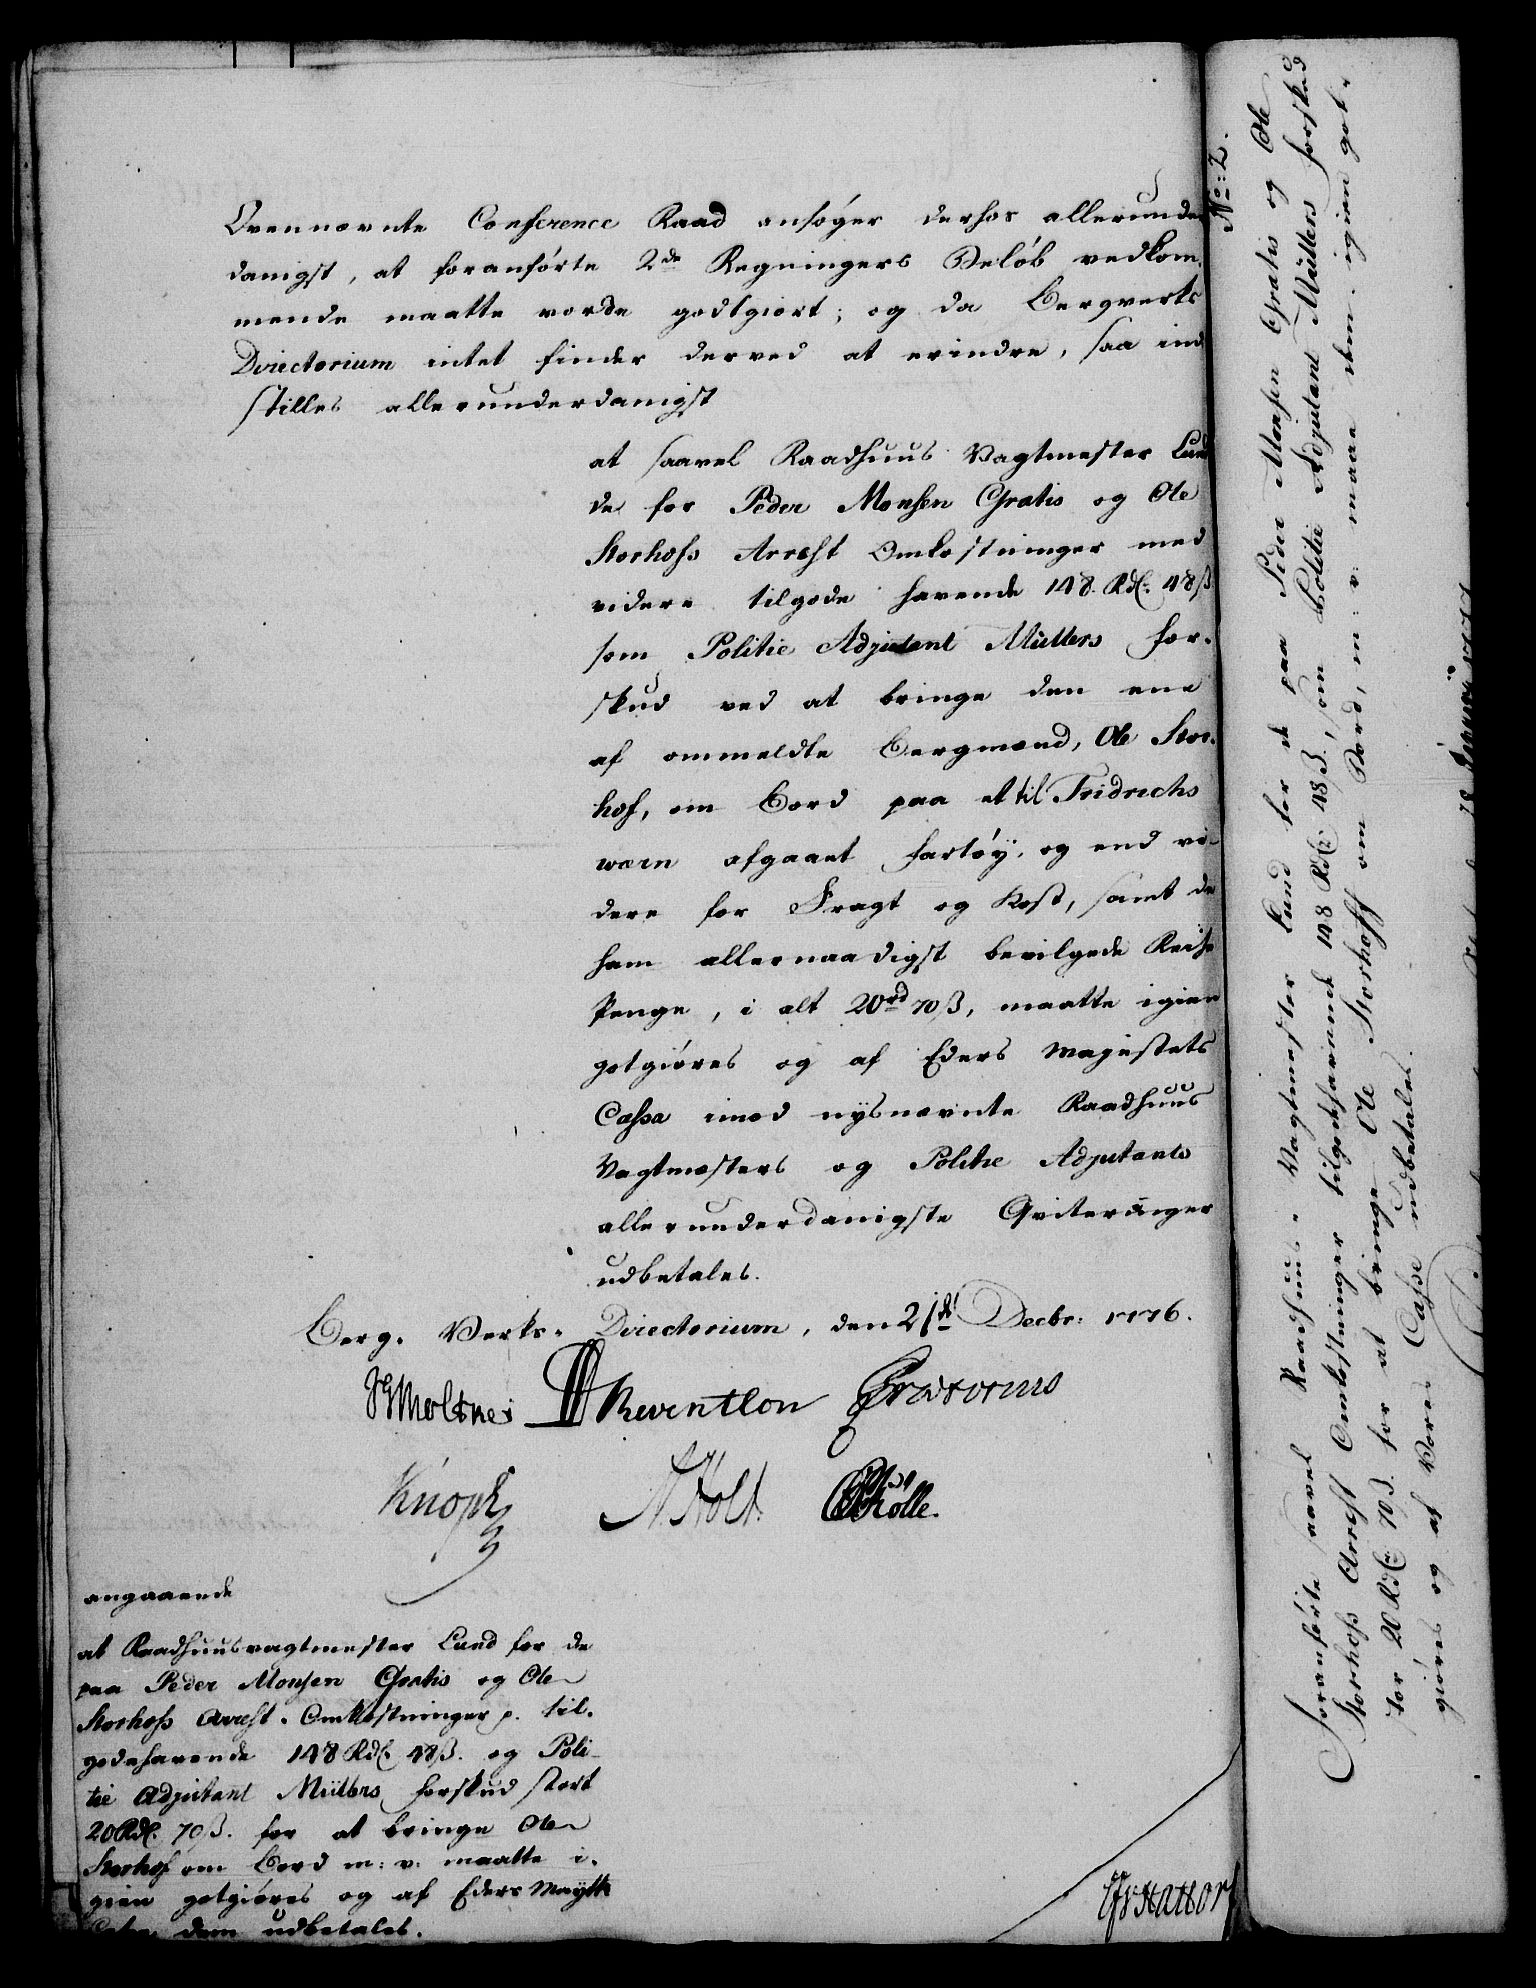 Ovennævnte Conference Raad ansøger derhos allerunder
danigst, at foranførte 2de Regningers Beløb vedkom-
mende maatte vorde godtgiort; og da Bergverks
Directorium intet finder derved at erindre, saa ind
stilles allerunderdanigst
at saavel Raadhuus Vagtmester Lun
de for Peder Monsen Gratis og Ole
Storhofs Arrest Omkostninger med
videre tilgode havende 148. Rdl: 48 ß
som Politie Adjutant Müllers for-
skud ved at bringe den ene
af ommeldte Bergmænd, Ole Stor-
hof, om Bord paa et til Fridrichs
wærn afgaaet Fartøÿ, og end vi-
dere for Fragt og Kost, samt de
ham allernaadigst bevilgede Reise
Penge, i alt 20 rd 70 ß, maatte igien
gotgiøres og af Eders Majestets
Cassa imod nysnævnte Raadhuus
Vagtmesters og Politie Adjutants
allerunderdanigste Qviteringer
udbetales.
Berg-Verks-Directorium, den 21de Decbr: 1776.
Moltke Reventlou Prætorius
Knoph A. Holt. Rølle.
angaaende
at Raadhuusvagtmester Lund for de
paa Peder Monsen Gratis og Ole
Storhofs Arrest-Omkostninger p. til-
godehavende 148 Rdl. 48 ß. og Poli-
tie Adjutant Müllers forskud stort
20 Rdl. 70 ß. for at bringe Ole
Storhof om Bord m: v: maatte i-
gien gotgiøres og af Eders Maÿts
dem udbetales.
No: 2.
Foranførte saavel Raadhuus-Vagtmester Lund for de paa Peder Monsen Gratis og Ole
Storhofs Arrest Omkostninger tilgodehavende 148 Rdlr 48 ß., som Politie Adjutant Müllers forskud
for 20 Rdlr 70 ß. for at bringe Ole Storhoff om Bord, m: v: maae dem igien got-
giøres og af Vores Casse udbetales.